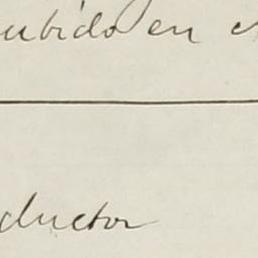 ubido en
ductor